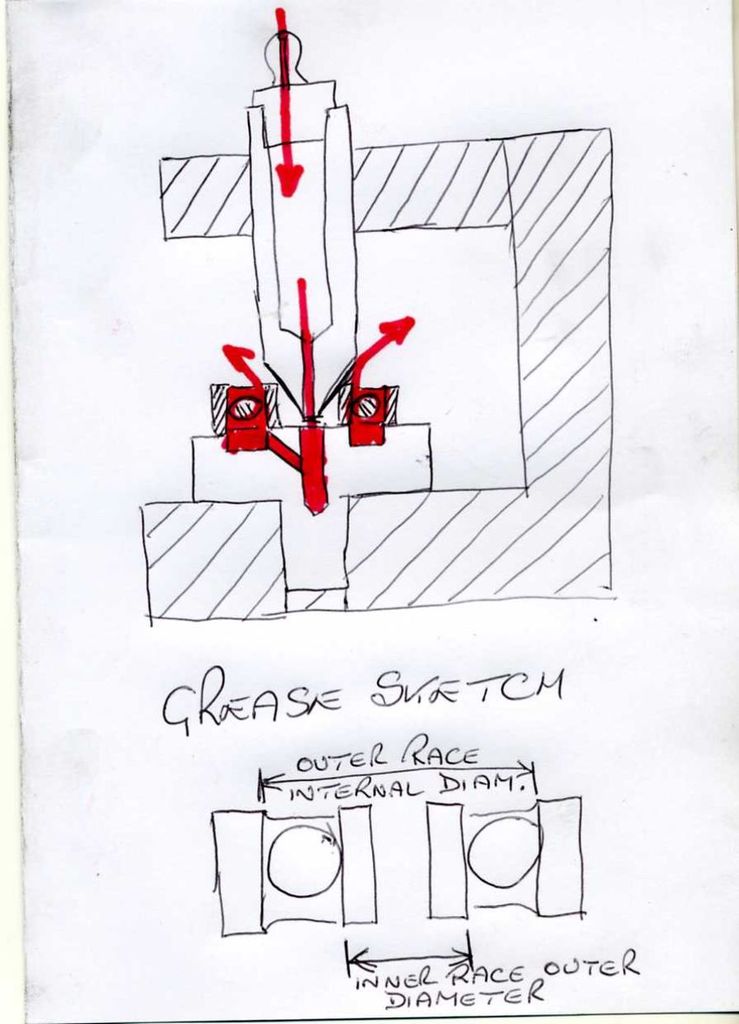 GREASE SKETCH
OUTER RACE
INTERNAL DIAM.
INNER RACE OUTER
DIAMETER